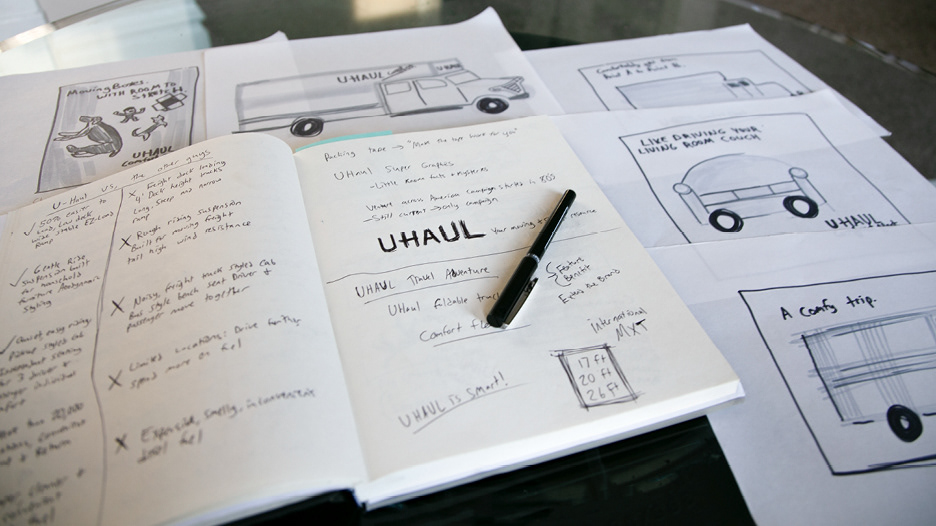 Moving Boxes.
WITH ROOM TO
STRETCH
UHAUL
U-HAUL
UHAUL
Comfortably get from
Point A to Point B.
LIKE DRIVING YOUR
LIVING ROOM COUCH
UHAUL
A Comfy trip.
U-Haul VS. the other guys
✓ 50% easier to
load, low deck
✓ Gentle Ride
suspension built
for household
furniture Aerodynamic
styling
✓ Quiet, easy riding,
Pickup styled cab
X Freight dock loading
4' Dock height trucks
Long, Steep and narrow
ramp
X Rough riding suspension
Built for moving freight
tall high wind resistance
X Noisy, freight truck styled Cab
Bus style bench seat Driver &
Passenger move together
X Limited Locations: Drive further,
spend more on fuel
X Expensive, smelly, inconvenient
diesel fuel
Packing tape → "Meet the tape made for you"
UHaul Super Graphics
- Little known facts & mysteries
Venture across American Campaign started in 1988
- Still current → only campaign
UHAUL Your moving resource
UHAUL Travel Adventure
Feature
Benefit
UHaul foldable
Extend the Brand
Comfort
international
MXT
17 ft
20 ft
26 ft
UHAUL is Smart!